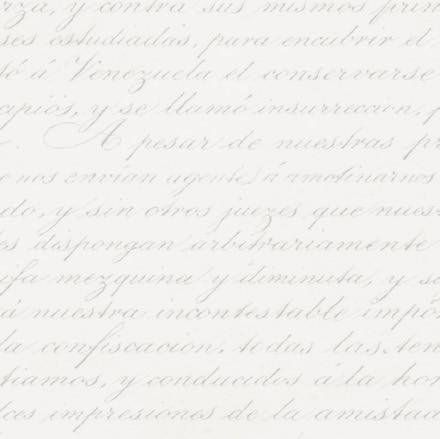 rza, y contra sus mismos prin
ses estudiadas, para encubrir el
tó á Venezuela el conservarse
cipios, y se llamó insurreccion, p
. A pesar de nuestras pr
e nos envian agentes á amotinarnos
do, y sin otros juezes que nues
es dispongan arbitrariamente
ifa mezquina y diminuta, y so
á nuestra incontestable impo
la confiscacion, todas las ten
tiamos, y conducidos á la hor
lces impresiones de la amistad